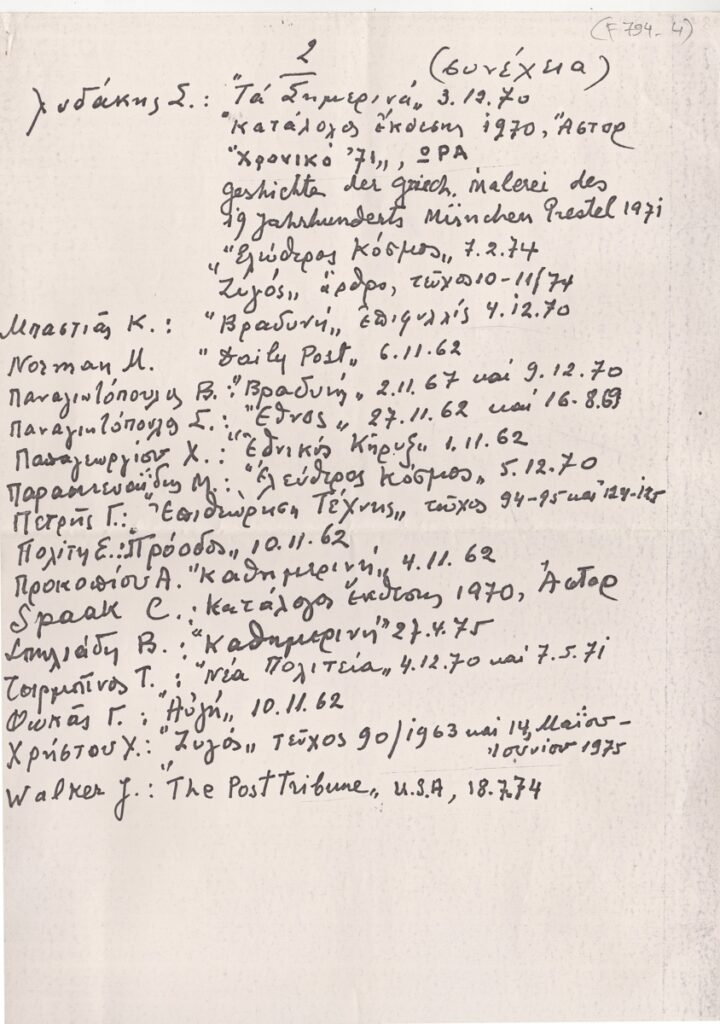 (F 794-4)
2
(συνέχεια)
Λυδάκης Σ.: "Τά Σημερινά„ 3.12.70
"Κατάλογος ἔκθεσης 1970, Ἄστορ
"Χρονικό '71„, ΩΡΑ
Geshichte der griech. Malerei des
19 Jahrhunderts München Prestel 1971
"Ἐλεύθερος Κόσμος„ 7.2.74
"Ζυγός„ ἄρθρο, τεῦχος 10-11/74
Μπαστιᾶς Κ.: "Βραδυνή„ ἐπιφυλλίς 4.12.70
Norman M. "Daily Post„ 6.11.62
Παναγιωτόπουλος Β.: "Βραδυνή„ 2.11.67 καί 9.12.70
Παναγιωτόπουλος Σ.: "Ἔθνος„ 27.11.62 καί 16.8.69
Παπαγεωργίου Χ.: "Ἐθνικός Κήρυξ„ 1.11.62
Παρασκευαΐδης Μ.: "Ἐλεύθερος Κόσμος„ 5.12.70
Πετρής Γ.: "Ἐπιθεώρηση Τέχνης„ τεῦχος 94-95 καί 124-125
Πολίτη Ε.: "Πρόοδος„ 10.11.62
Προκοπίου Α. "Καθημερινή„ 4.11.62
Spaak C.: Κατάλογος ἔκθεσης 1970, Ἄστορ
Σπηλιάδη Β.: "Καθημερινή" 27.4.75
Τσιρμπῖνος Τ.: "Νέα Πολιτεία„ 4.12.70 καί 7.5.71
Φωκᾶς Γ.: "Αὐγή„ 10.11.62
Χρήστου Χ.: "Ζυγός„ τεῦχος 90/1963 καί 14, Μαΐου-
Ἰούνιου 1975
Walker J.: "The Post Tribune„ U.S.A, 18.7.74